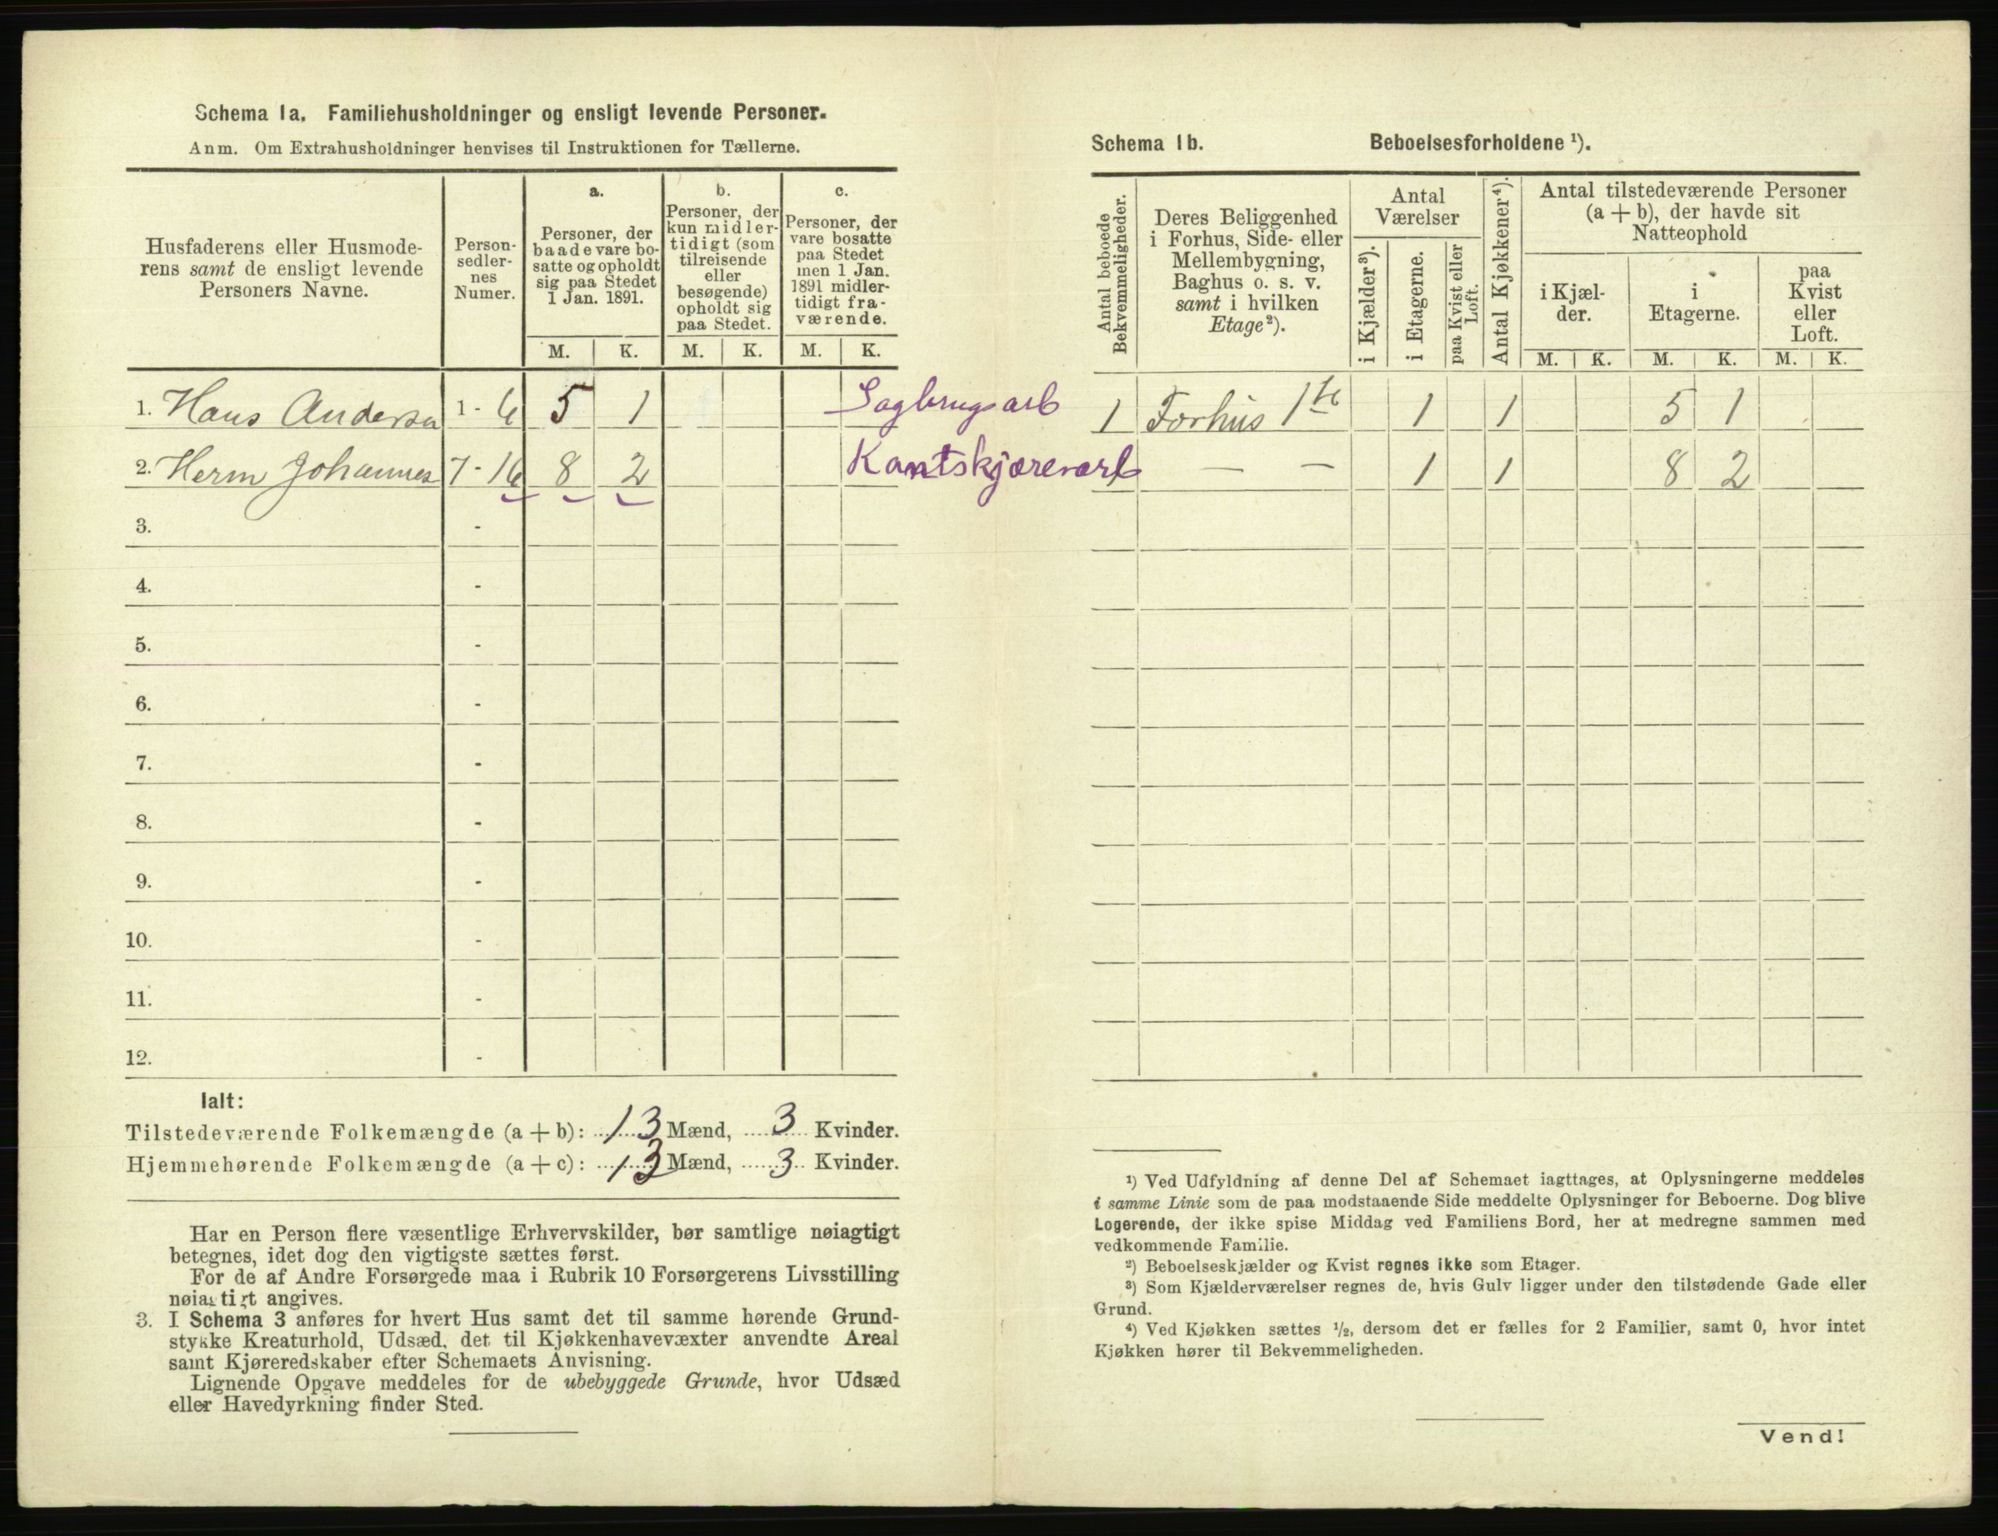 Schema 1a. Familiehusholdninger og ensligt levende Personer.
Anm. Om Extrahusholdninger henvises til Instruktionen for Tællerne.
Husfaderens eller Husmoderens samt de ensligt levende Personers Navne.
Personsedlernes Numer.
a.
Personer, der baade vare bosatte og opholdt sig paa Stedet 1 Jan. 1891.
b.
Personer, der kun midlertidigt (som tilreisende eller besøgende) opholdt sig paa Stedet.
c.
Personer, der vare bosatte paa Stedet men 1 Jan. 1891 midlertidigt fraværende.
M. K. M. K. M. K.
1. Hans Andersn 1 - 6 5 1 Sagbrugsarb
2. Herm Johannes 7 - 16 8 2 Kantskjærerarb
3. -
4. -
5. -
6. -
7. -
8. -
9. -
10. -
11. -
12. -
Ialt:
Tilstedeværende Folkemængde (a + b): 13 Mænd, 3 Kvinder.
Hjemmehørende Folkemængde (a + c): 13 Mænd, 3 Kvinder.
Har en Person flere væsentlige Erhvervskilder, bør samtlige nøiagtigt
betegnes, idet dog den vigtigste sættes først.
For de af Andre Forsørgede maa i Rubrik 10 Forsørgerens Livsstilling
nøiagtigt angives.
3. I Schema 3 anføres for hvert Hus samt det til samme hørende Grund-
stykke Kreaturhold, Udsæd, det til Kjøkkenhavevæxter anvendte Areal
samt Kjøreredskaber efter Schemaets Anvisning.
Lignende Opgave meddeles for de ubebyggede Grunde, hvor Udsæd
eller Havedyrkning finder Sted.
Schema 1b. Beboelsesforholdene ¹).
Antal beboede Bekvemmeligheder.
Deres Beliggenhed i Forhus, Side- eller Mellembygning, Baghus o. s. v. samt i hvilken Etage²).
Antal Værelser
i Kjælder³).
i Etagerne.
paa Kvist eller Loft.
Antal Kjøkkener⁴).
Antal tilstedeværende Personer (a + b), der havde sit Natteophold
i Kjælder.
i Etagerne.
paa Kvist eller Loft.
M. K. M. K. M. K.
1 Forhus 1te 1 1 5 1
— — 1 1 8 2
¹) Ved Udfyldning af denne Del af Schemaet iagttages, at Oplysningerne meddeles
i samme Linie som de paa modstaaende Side meddelte Oplysninger for Beboerne. Dog blive
Logerende, der ikke spise Middag ved Familiens Bord, her at medregne sammen med
vedkommende Familie.
²) Beboelseskjælder og Kvist regnes ikke som Etager.
³) Som Kjælderværelser regnes de, hvis Gulv ligger under den tilstødende Gade eller
Grund.
⁴) Ved Kjøkken sættes ½, dersom det er fælles for 2 Familier, samt 0, hvor intet
Kjøkken hører til Bekvemmeligheden.
Vend!